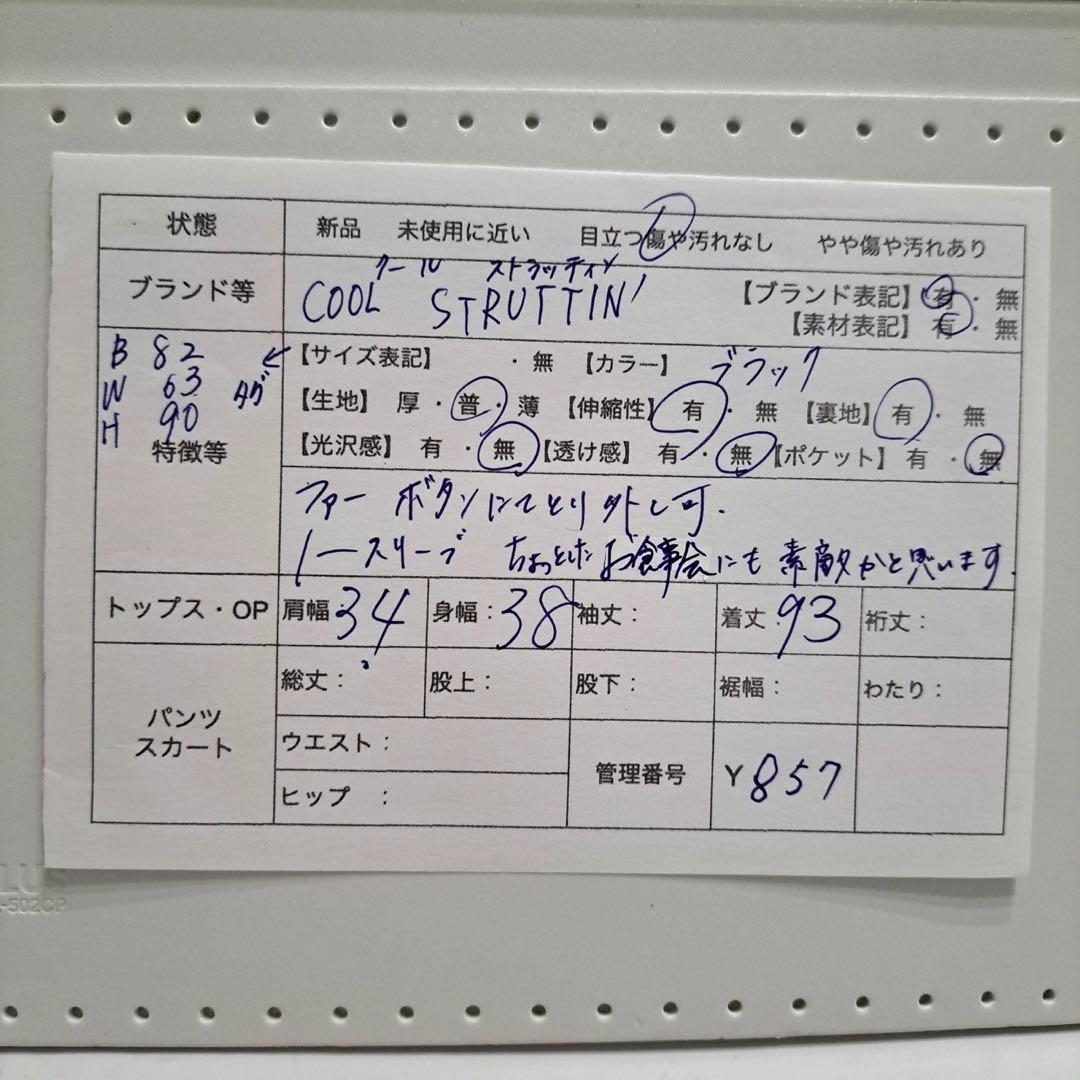 状態 新品 未使用に近い 目立つ傷や汚れなし やや傷や汚れあり
クール ストラッティン
ブランド等 COOL STRUTTIN' 【ブランド表記】有・無
【素材表記】有・無
B 82 【サイズ表記】 ・無 【カラー】 ブラック
W 63 タグ 【生地】 厚・普・薄 【伸縮性】 有・無 【裏地】 有・無
H 90
特徴等 【光沢感】 有・無 【透け感】 有・無 【ポケット】 有・無
ファー ボタンにてとり外し可.
ノースリーブ ちょっとしたお食事会にも素敵かと思います.
トップス・OP 肩幅:34 身幅:38 袖丈: 着丈:93 裄丈:
総丈: 股上: 股下: 裾幅: わたり:
パンツ
スカート
ウエスト: 管理番号 Y 857
ヒップ :
LUS
-502CP